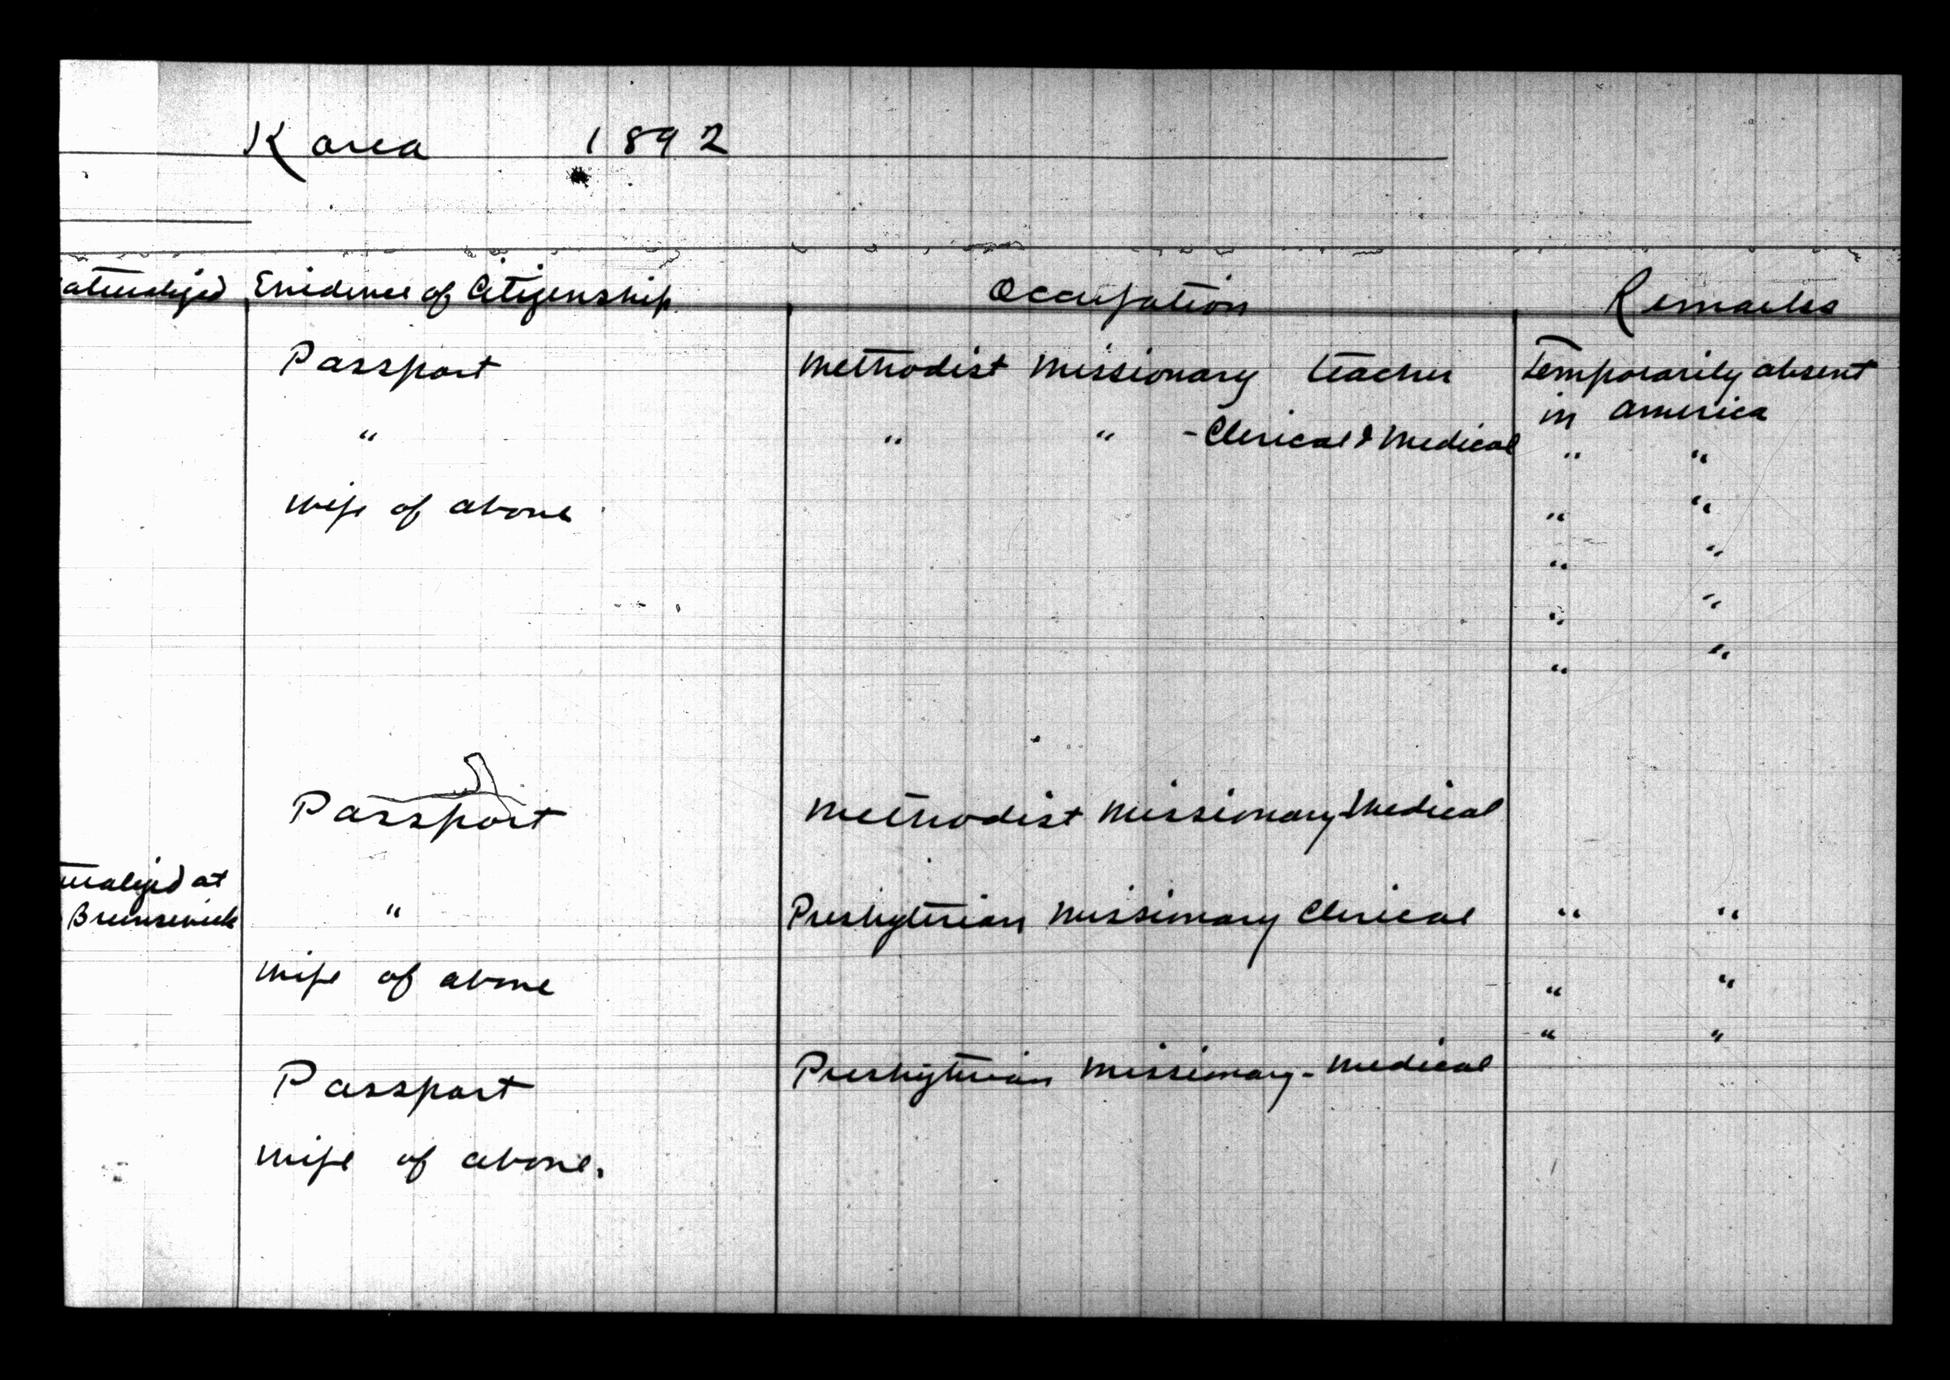 Korea 1892
aturalized Evidence of Citizenship Occupation Remarks
Passport Methodist Missionary teacher Temporarily absent
in America
" " " - Clerical & Medical " "
wife of above " "
" "
" "
" "
Passport Methodist Missionary - Medical
uralized at
Brunswick " Presbyterian Missionary Clerical " "
wife of above " "
" "
Passport Presbyterian Missionary - Medical
wife of above.